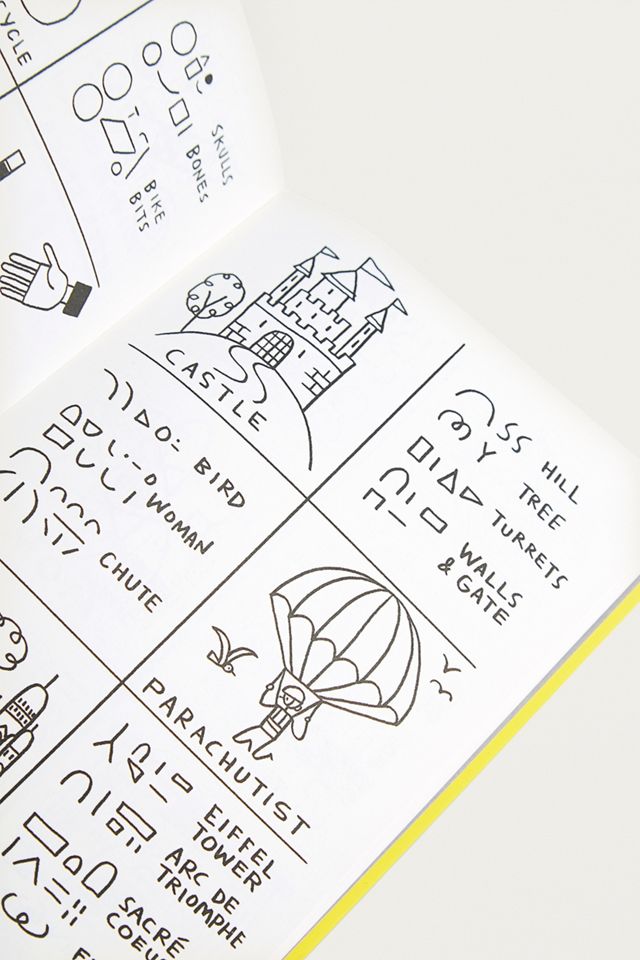 CYCLE
SKULLS
BONES
BIKE
BITS
CASTLE
HILL
TREE
TURRETS
WALLS
& GATE
BIRD
WOMAN
CHUTE
PARACHUTIST
EIFFEL
TOWER
ARC DE
TRIOMPHE
SACRÉ